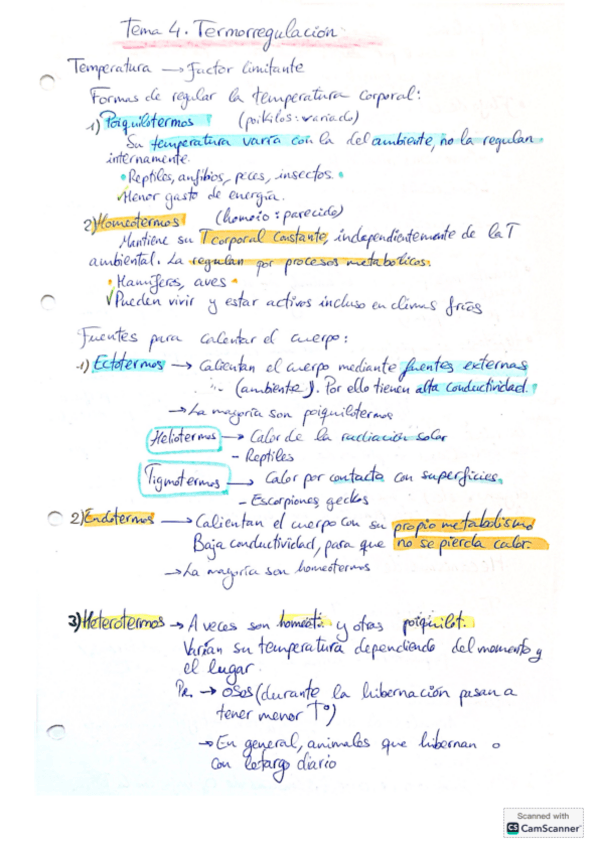 Tema 4. Termorregulación.
Temperatura → Factor limitante
Formas de regular la temperatura corporal:
1) Poiquilotermos (poikilos: variado)
Su temperatura varía con la del ambiente, no la regulan
internamente.
• Reptiles, anfibios, peces, insectos.
✓ Menor gasto de energía.
2) Homeotermos (homoio: parecido)
Mantiene su T corporal constante, independientemente de la T
ambiental. La regulan por procesos metabólicos.
• Mamíferos, aves
✓ Pueden vivir y estar activos incluso en climas fríos
Fuentes para calentar el cuerpo:
1) Ectotermos → Calientan el cuerpo mediante fuentes externas
(ambiente). Por ello tienen alta conductividad.
→ La mayoría son poiquilotermos
Heliotermos → Calor de la radiación solar
- Reptiles
Tigmotermos → Calor por contacto con superficies.
- Escorpiones, geckos
2) Endotermos → Calientan el cuerpo con su propio metabolismo
Baja conductividad, para que no se pierda calor.
→ La mayoría son homeotermos
3) Heterotermos → A veces son homeot. y otras poiquilot.
Varían su temperatura dependiendo del momento y
el lugar.
→ Osos (durante la hibernación pasan a
tener menor Tº)
→ En general, animales que hibernan o
con letargo diario
Scanned with
CS CamScanner